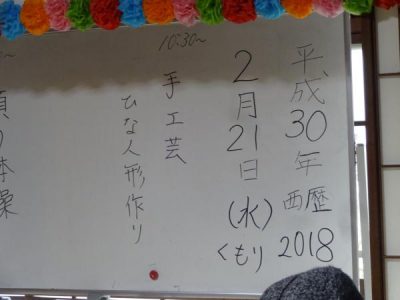 平成30年 西暦2018
2月21日(水) くもり
10:30~
手工芸
ひな人形作り
体操